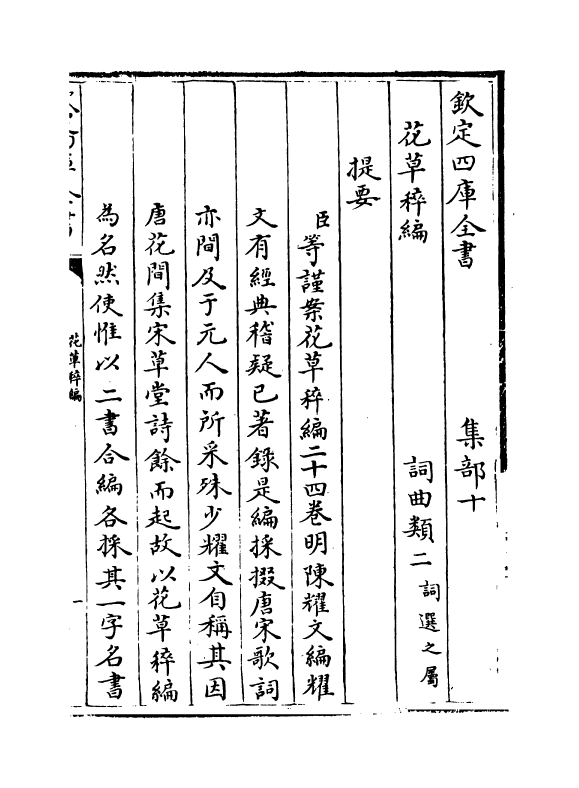 欽定四庫全書 集部十
花草稡編 詞曲類二 詞選之屬
提要
臣等謹案花草稡編二十四卷明陳耀文編耀
文有經典稽疑已著錄是編採掇唐宋歌詞
亦間及于元人而所采殊少耀文自稱其因
唐花間集宋草堂詩餘而起故以花草稡編
為名然使惟以二書合編各採其一字名書
花草稡編
一